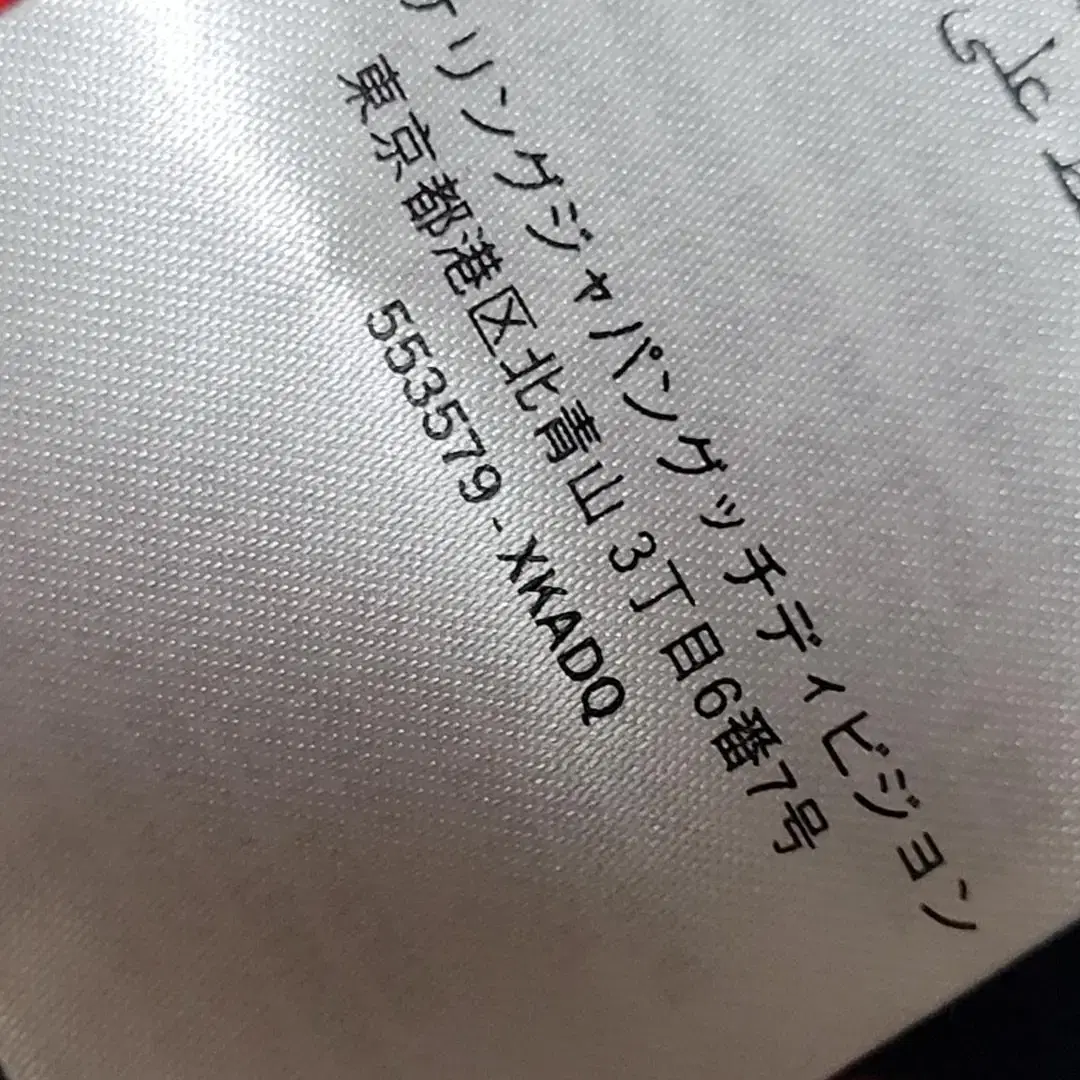 ケリングジャパングッチディビジョン
東京都港区北青山3丁目6番7号
553579-XKADQ